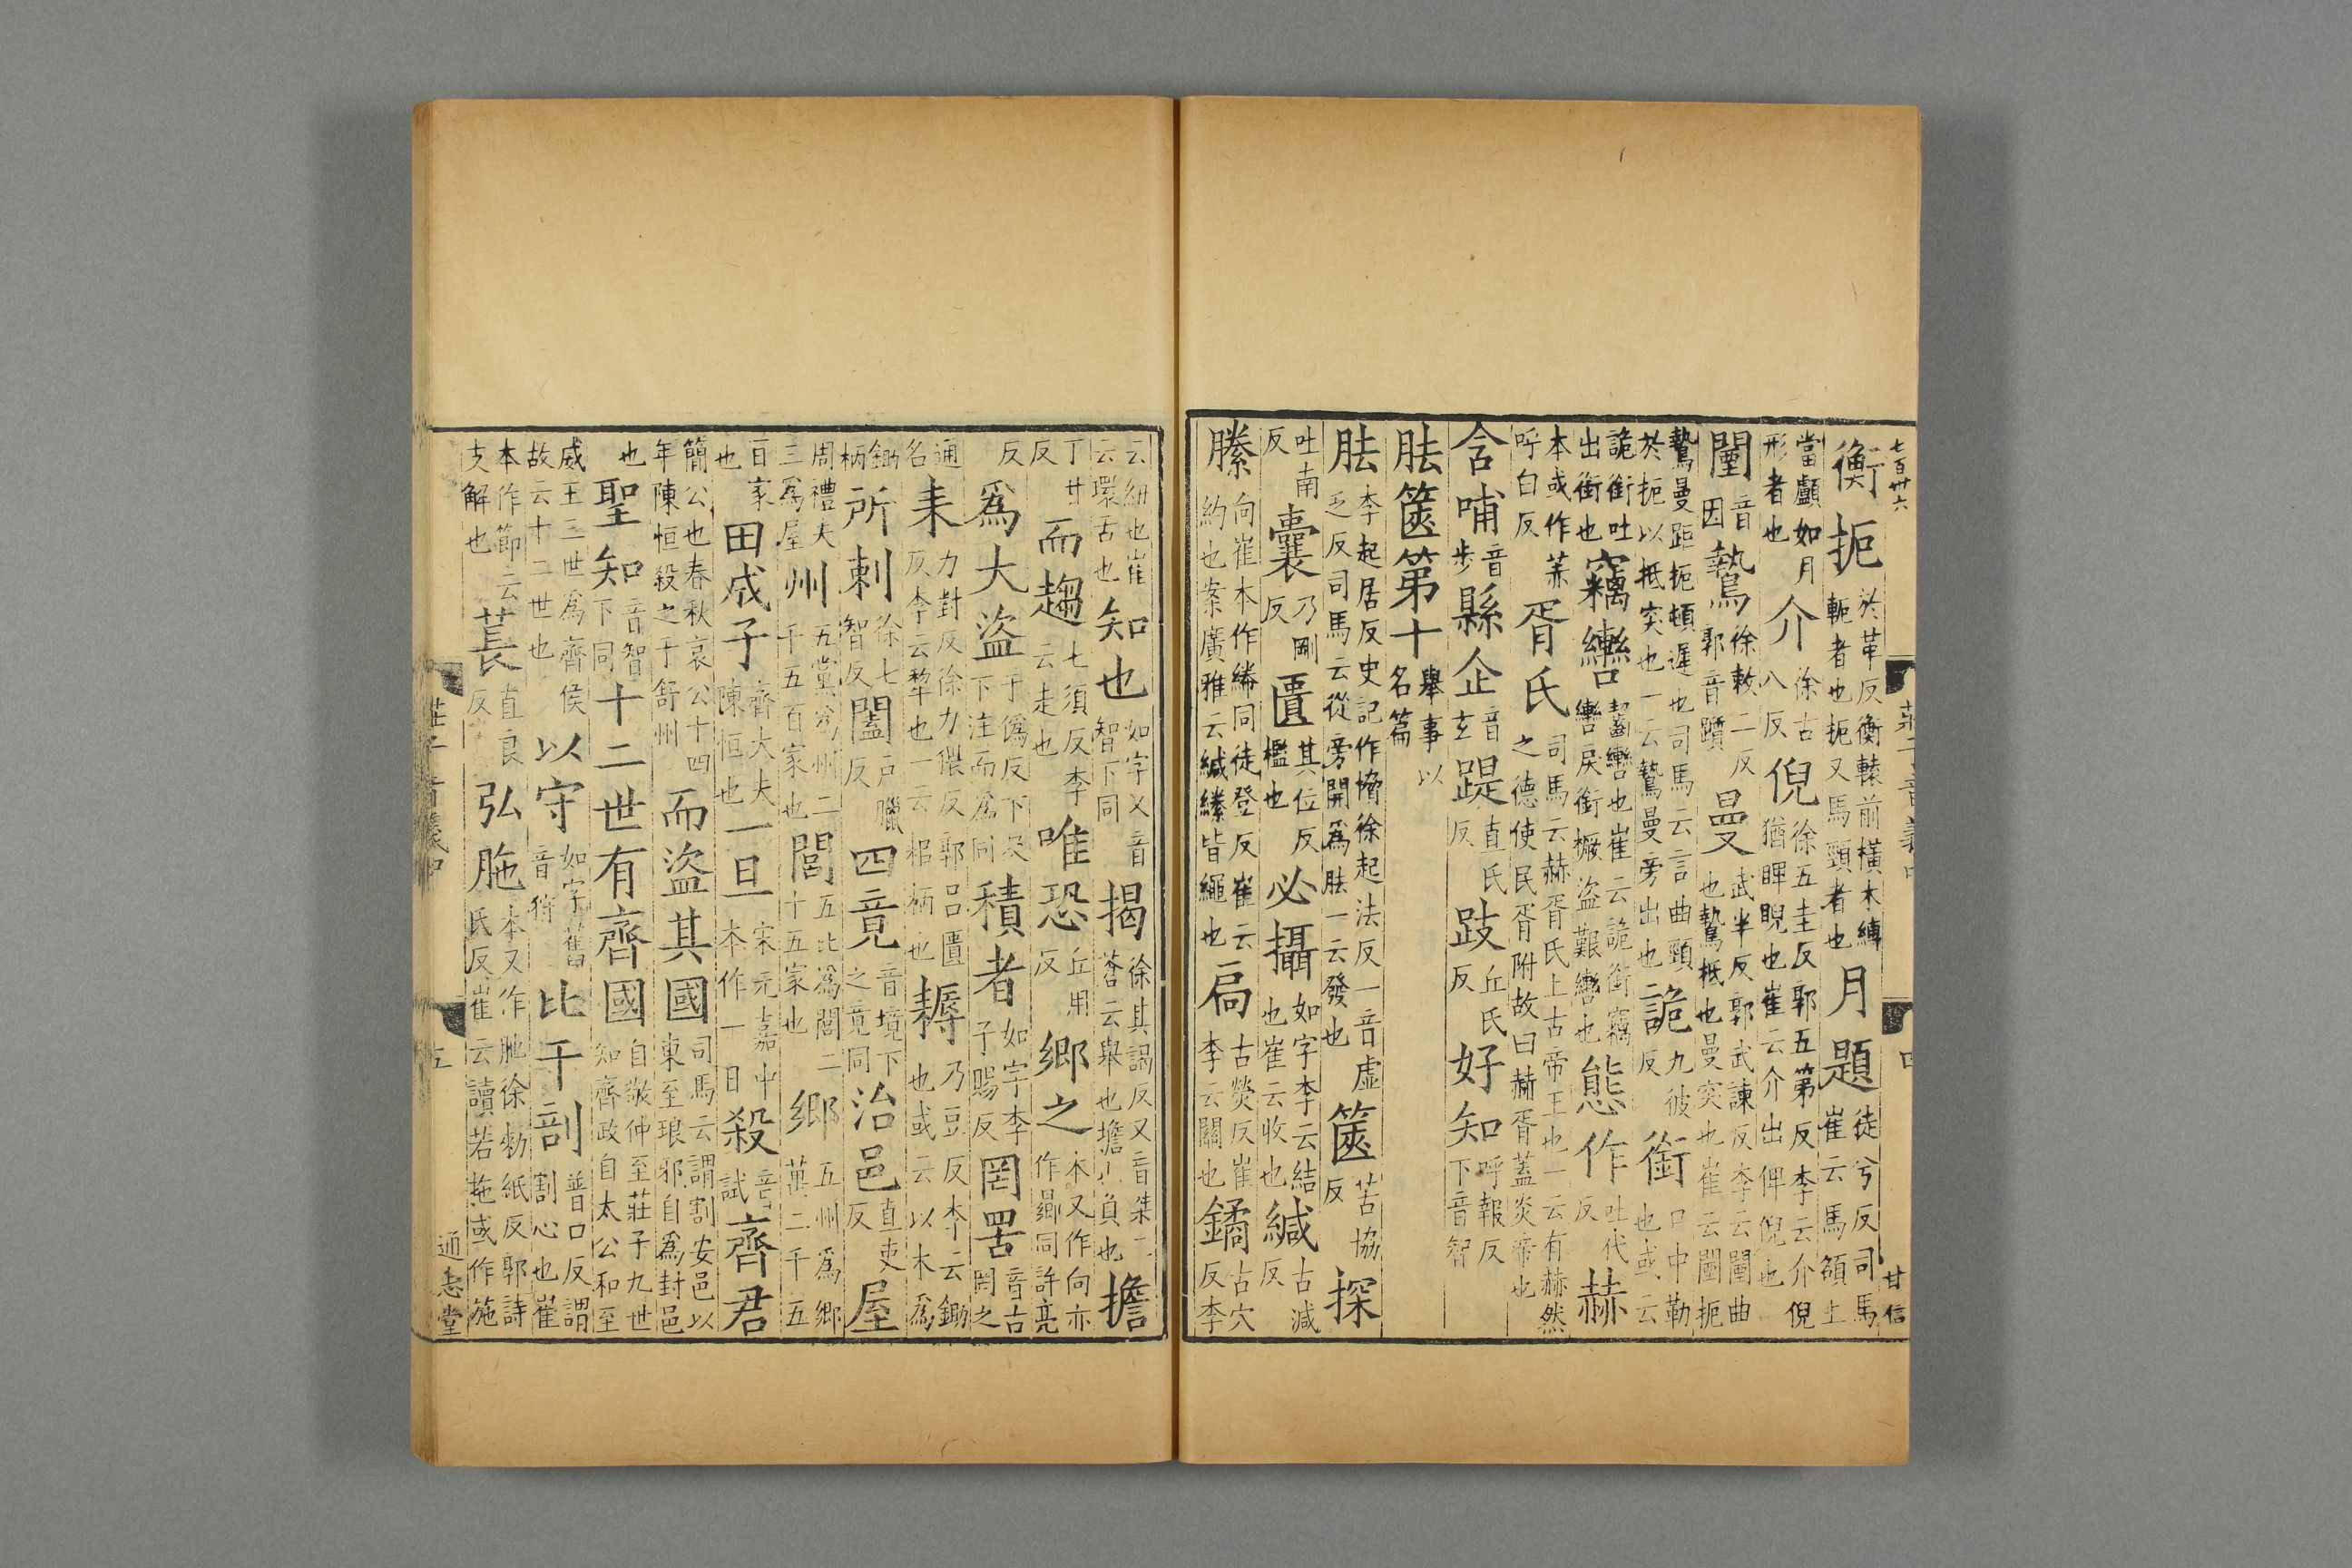 七百卅六
莊子音義中
四
甘信
衡扼於革反衡轅前橫木縛軛者也扼又馬頸者也月題徒兮反司馬崔云馬頟上
當顱如月形者也介徐古八反倪徐五圭反郭五第反李云介倪猶睥睨也崔云介出俾倪也
闉音因鷙徐敕二反郭音躓曼武半反郭武諫反李云闉曲也鷙抵也曼突也崔云闉扼
鷙曼距扼頓遲也司馬云言曲頸於扼以抵突也一云鷙曼旁出也詭九彼反銜口中勒也或云
詭銜吐出銜也竊轡齧轡也崔云詭銜竊轡戾銜橛盜艱轡也態作吐代反赫
本或作呼白反胥氏司馬云赫胥氏上古帝王也一云有赫然之德使民胥附故曰赫胥蓋炎帝也
含哺音步縣企音玄踶直氏反跂丘氏反好知呼報反下音智
胠篋第十舉事以名篇
胠李起居反史記作脅徐起法反一音虛乏反司馬云從旁開爲胠一云發也篋苦協反探
吐南反囊乃剛反匱其位反檻也必攝如字李云結也崔云收也緘古減反
縢向崔本作同徒登反崔云約也案廣雅云緘縢皆繩也扃古熒反崔李云關也鐍古穴反李
云紐也崔云環舌也知也如字又音智下同揭徐其謁反又音桀三蒼云舉也擔也負也擔
丁甘反而趨七須反李云走也唯恐丘用反鄉之本又作向亦作曏同許亮
反爲大盜于僞反下及下注而爲同積者如字李子賜反罔罟音古罔之
通名耒力對反徐力猥反郭呂匱反李云犂也一云耜柄也耨乃豆反李云鋤也或云以木爲
鋤柄所刺徐七智反闔戶臘反四竟音境下之竟同治邑直吏反屋
周禮夫三爲屋州五黨爲州二千五百家也閭五比爲閭二十五家也鄉五州爲鄉萬二千五
百家也田成子齊大夫陳恒也一旦宋元嘉中本作一日殺音試齊君
簡公也春秋哀公十四年陳恒殺之于舒州而盜其國司馬云謂割安邑以東至琅邪自爲封邑
也聖知音智下同十二世有齊國自敬仲至莊子九世知齊政自太公和至
威王三世爲齊侯故云十二世也以守如字舊音狩比干剖普口反謂割心也崔
本作節云支解也萇直良反弘胣本又作胣徐勑紙反郭詩氏反崔云讀若拖或作施
莊子音義中
五
通志堂